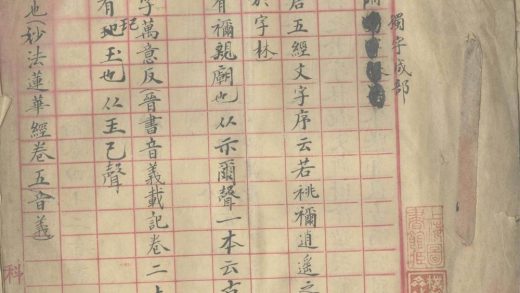 獨字成部
五經文字序云若祧禰逍遙之
於字林
有禰親廟也从示爾聲一本云古
字萬意反晉書音義載記卷二
玘
有玉也从玉己聲
也(妙法蓮華經卷五音義
科
上海圖書館藏